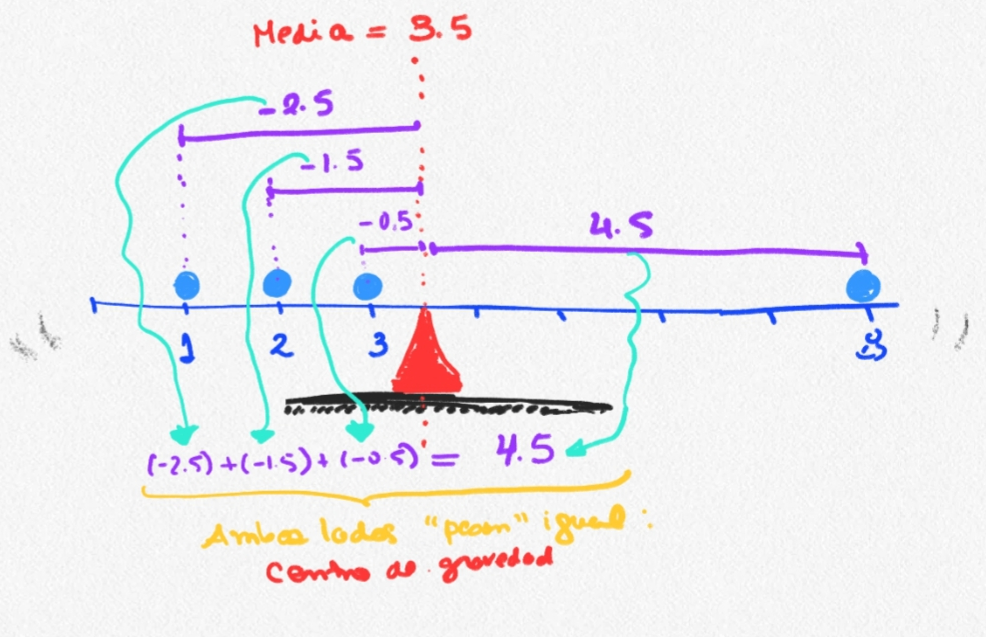 Media = 3.5
-2.5
-1.5
-0.5
4.5
1 2 3 8
(-2.5) + (-1.5) + (-0.5) = 4.5
Ambos lados "pesan" igual:
Centro de gravedad